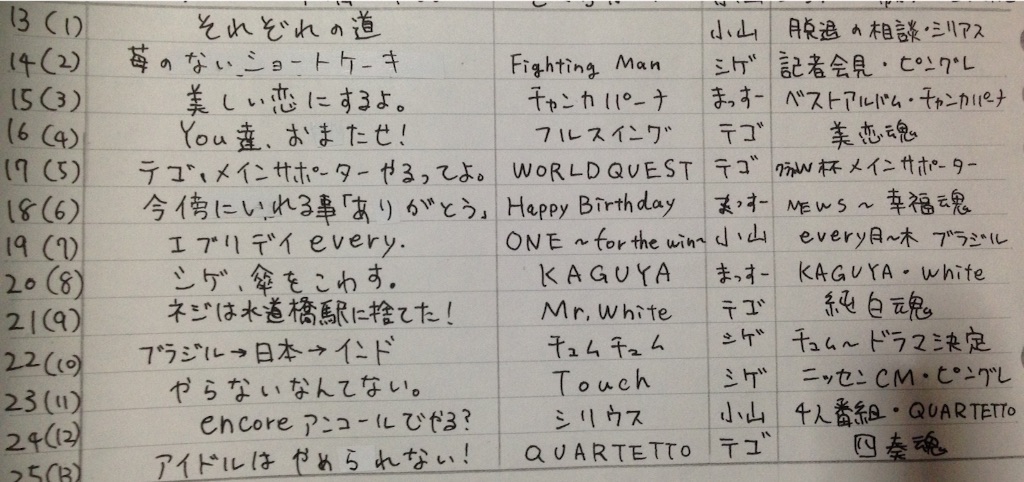 13 (1) それぞれの道 小山 脱退の相談・シリアス
14 (2) 苺のないショートケーキ Fighting Man シゲ 記者会見・ピングレ
15 (3) 美しい恋にするよ。 チャンカパーナ まっすー ベストアルバム・チャンカパーナ
16 (4) You達、おまたせ! フルスイング テゴ 美恋魂
17 (5) テゴ、メインサポーターやるってよ。 WORLD QUEST テゴ W杯メインサポーター
18 (6) 今傍にいれる事「ありがとう」 Happy Birthday まっすー NEWS〜幸福魂
19 (7) エブリデイevery. ONE〜for the win〜 小山 every月〜木 ブラジル
20 (8) シゲ、傘をこわす。 KAGUYA まっすー KAGUYA・White
21 (9) ネジは水道橋駅に捨てた! Mr. White テゴ 純白魂
22 (10) ブラジル→日本→インド チュムチュム シゲ チュム〜ドラマ決定
23 (11) やらないなんてない。 Touch シゲ ニッセンCM・ピングレ
24 (12) encoreアンコールでやる? シリウス 小山 4人番組・QUARTETTO
25 (13) アイドルはやめられない! QUARTETTO テゴ 四奏魂